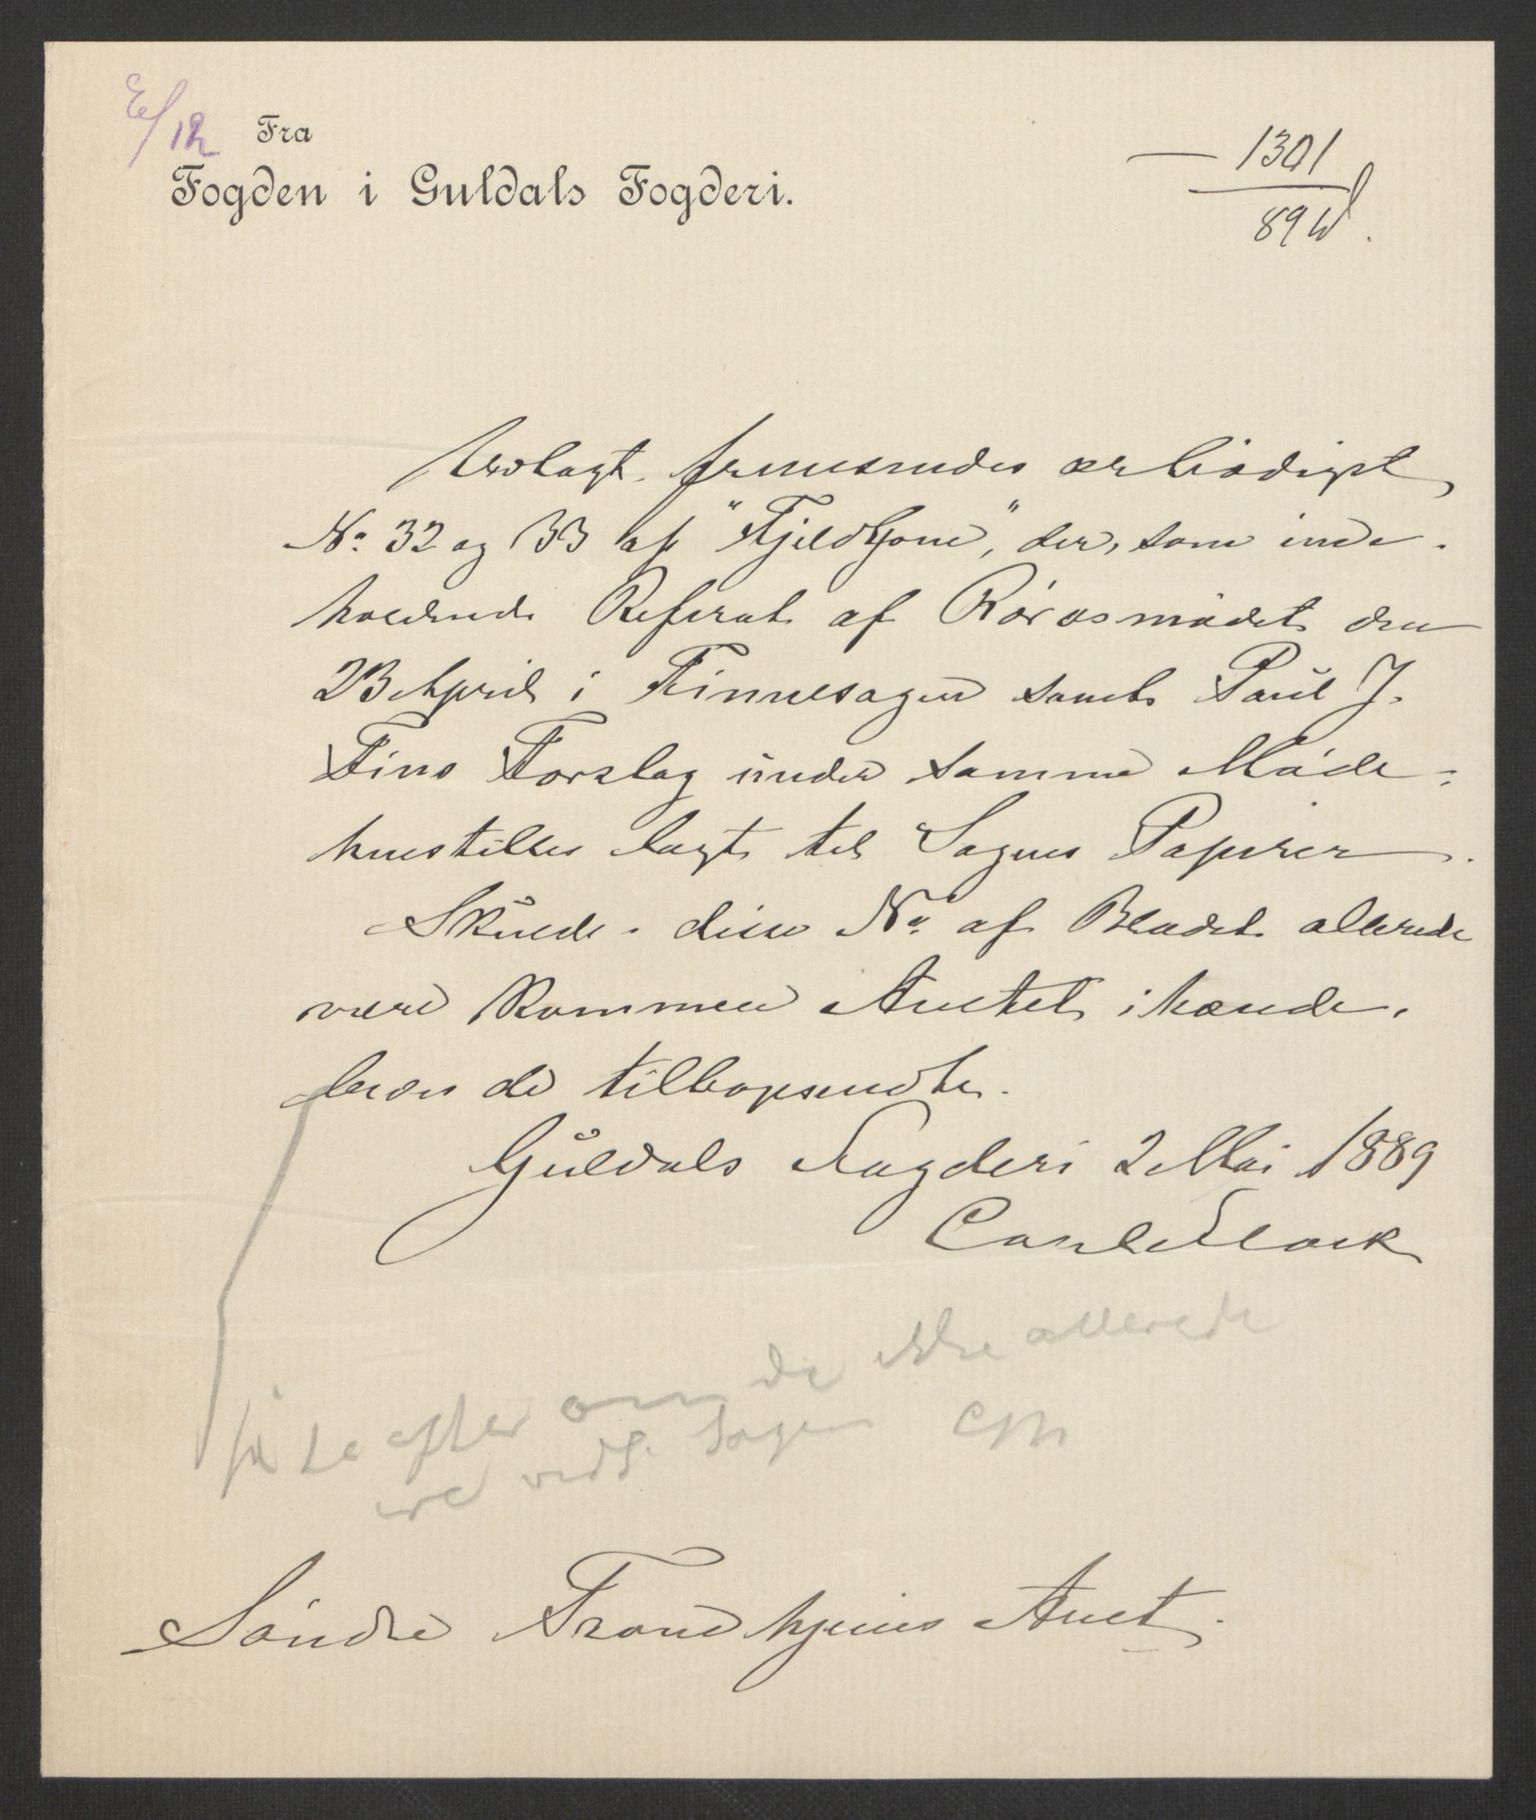 E/12
Fra
Fogden i Guldals Fogderi.
1301
89 W.
Hvolagt fremsendes ærbødigst
No. 32 og 33 af "Fjeldtjom", der, som inde-
holdende Referat af Rørosmødet den
23 April i Finnesagen samt Paul J.
Fins Forslag under samme Møde -
henstilles lagt til Sagens Papirer.
Skulde disse No. af Bladet allerede
være kommen Amtet ihænde,
bedes de tilbagesendte.
Guldals Fogderi 2 Mai 1889
Carl Flock
se efter om de ikke allerede
er vedl. Sagen
Søndre Trondhjems Amt.